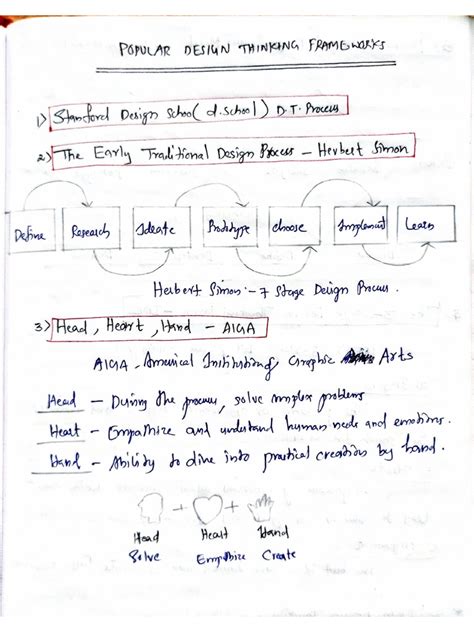 POPULAR DESIGN THINKING FRAMEWORKS
1) Stanford Design School (d.school) D.T. Process
2) The Early Traditional Design Process - Herbert Simon
Define Research Ideate Prototype choose Implement Learn
Herbert Simon :- 7 Stage Design Process.
3) Head, Heart, Hand - AIGA
AIGA - American Institution of Graphic Arts
Head - During the process, solve complex problems
Heart - Empathize and understand human needs and emotions.
Hand - Ability to dive into practical creation by hand.
+ +
Head Heart Hand
Solve Empathize Create